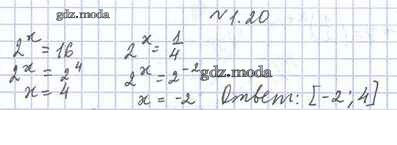 gdz.moda
№ 1.20
2^x = 16
2^x = 2^4
x = 4
2^x = 1/4
2^x = 2^-2
gdz.moda
x = -2
Ответ: [-2; 4]